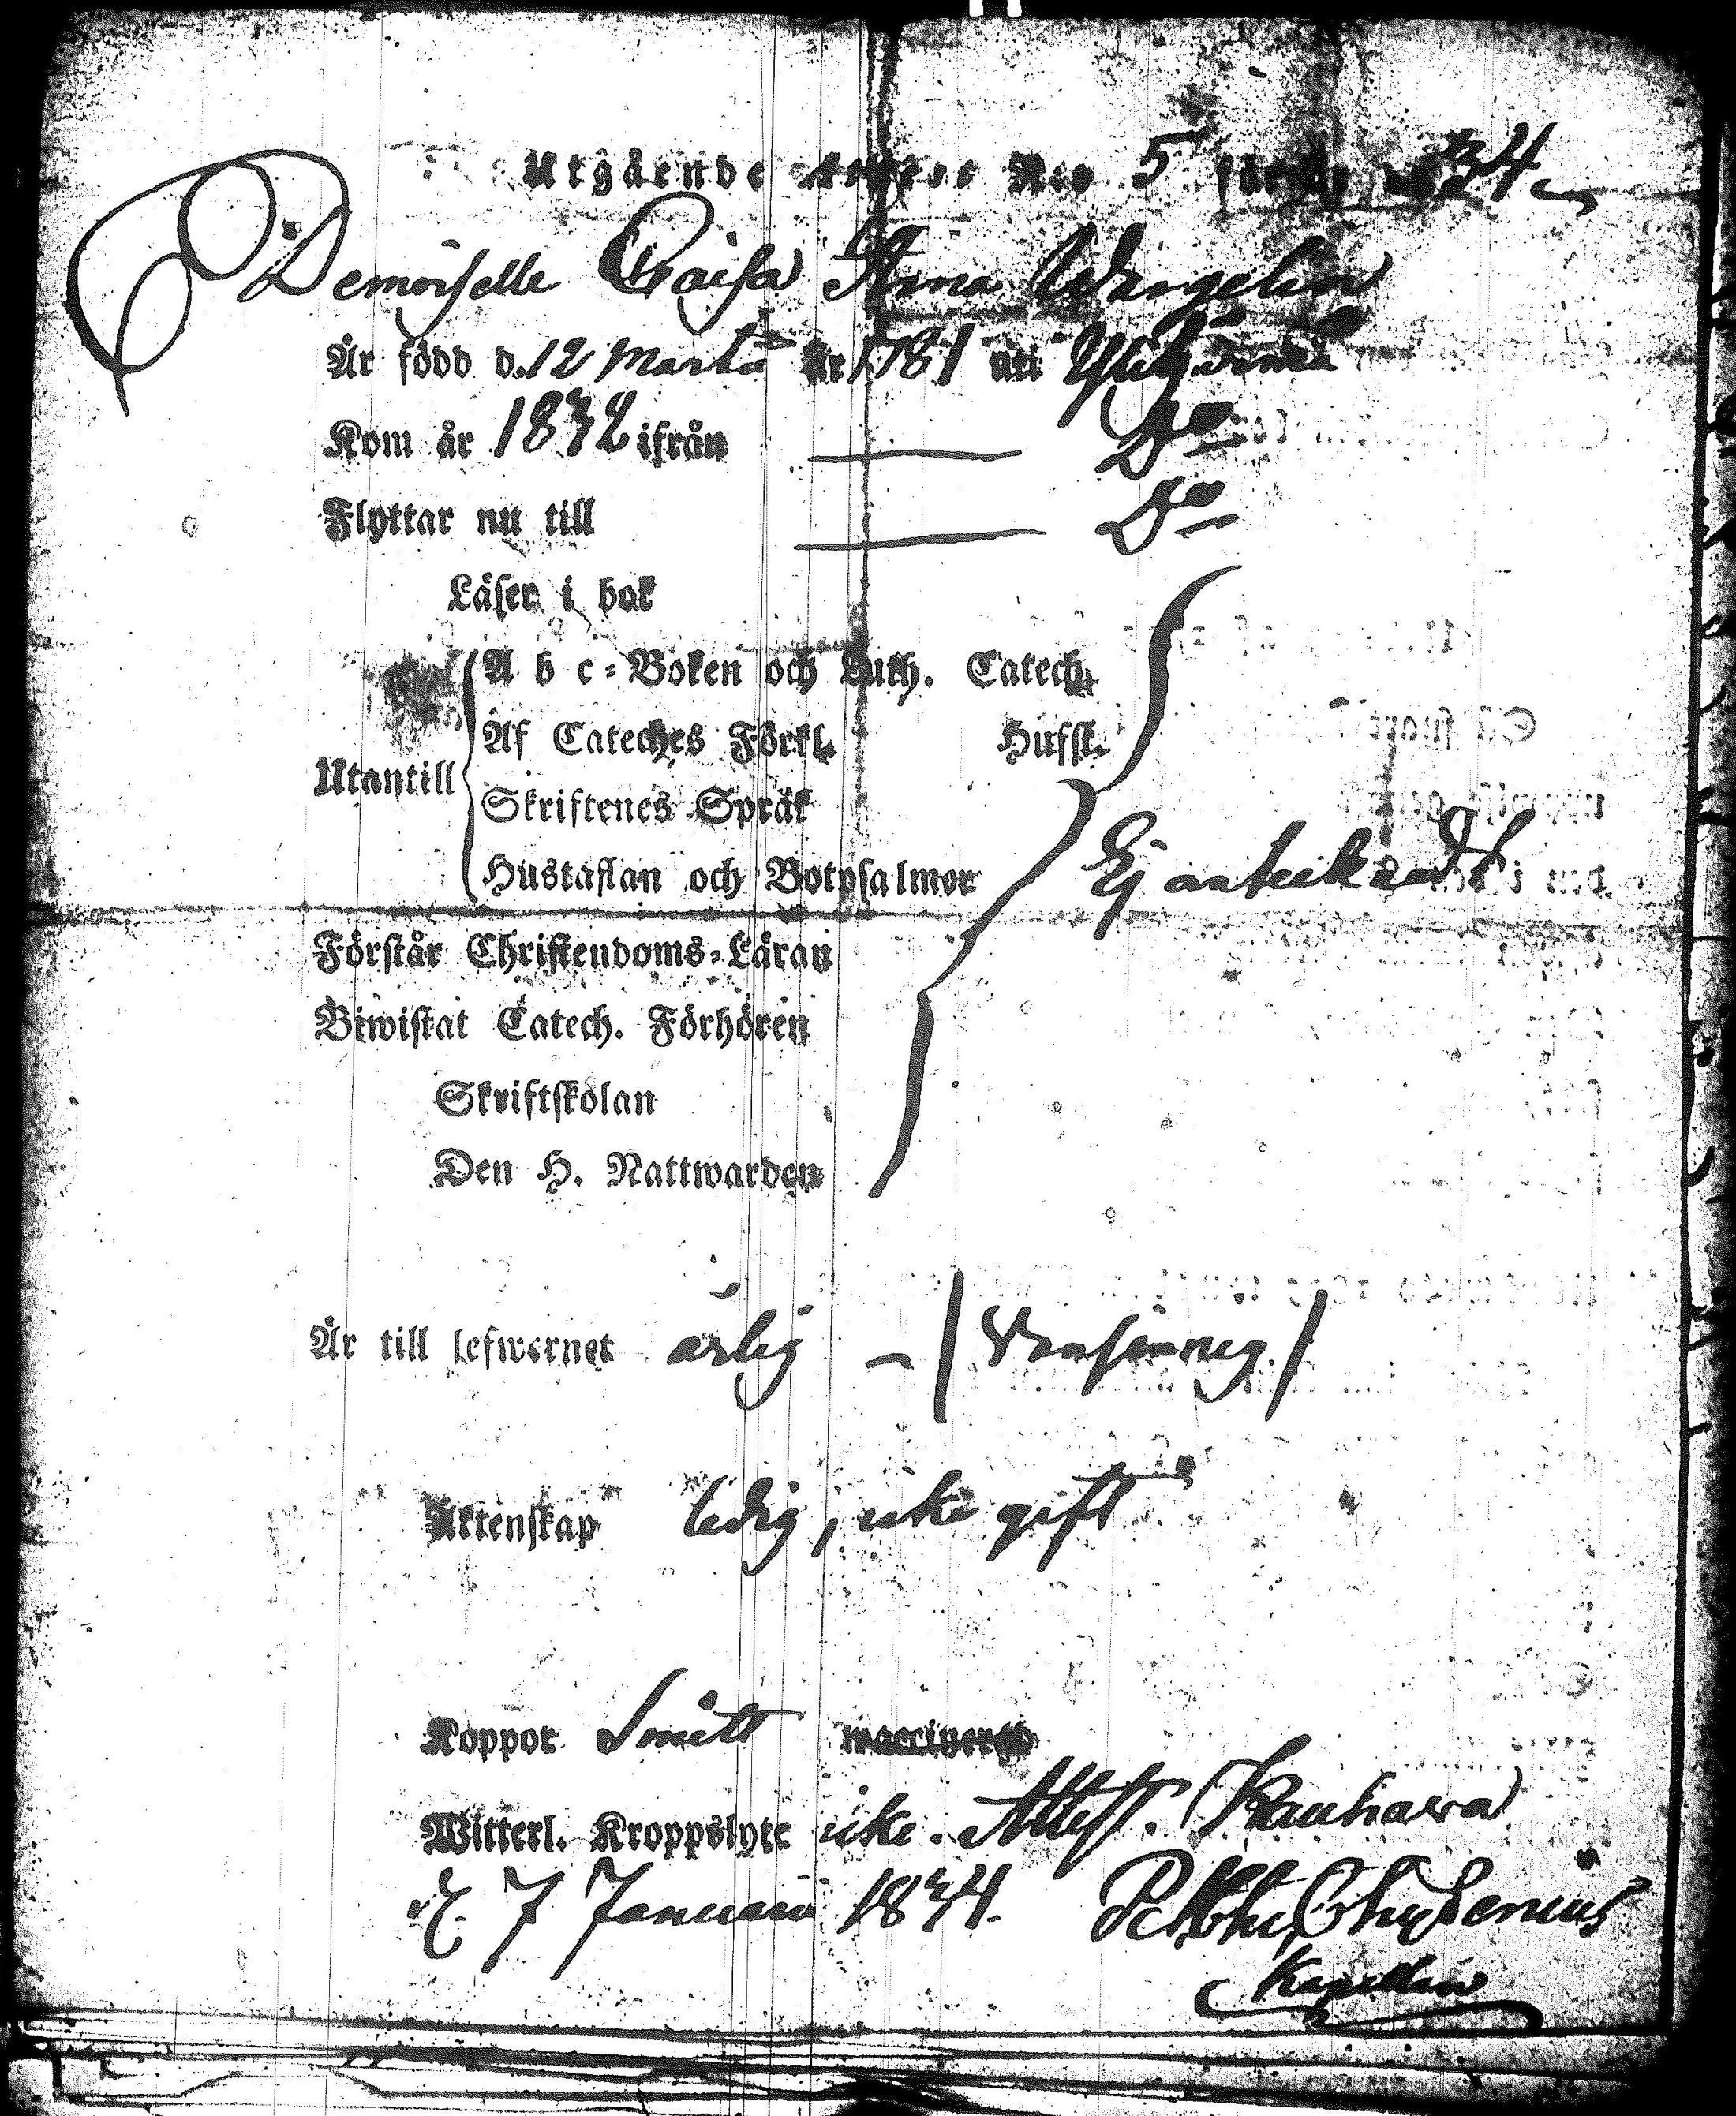 Utgående Attest No 5 för år 1834
Demoiselle Caisa Anna Wargelin
Är född d. 12 Martii År 1781 uti
Kom år 1832 ifrån — Do
Flyttar nu till — Do
Läser i bok
A b c-Boken och Luth. Catech.
Af Cateches Förkl. Husfl.
Utantill
Skriftenes Språk
Hustaflan och Botpsalmer Ej antecknadt
Förstår Christendoms-Läran
Biwistat Catech. Förhören
Skriftskolan
Den H. Nattwarden
Är till lefwernet ärlig – / Vansinnig /
Äktenskap ledig, icke gift
Koppor Smitt waccinerad
Witterl. Kroppslyte icke. Attest. Kauhava
d. 7 Januarii 1834. Chydenius
Kapellan